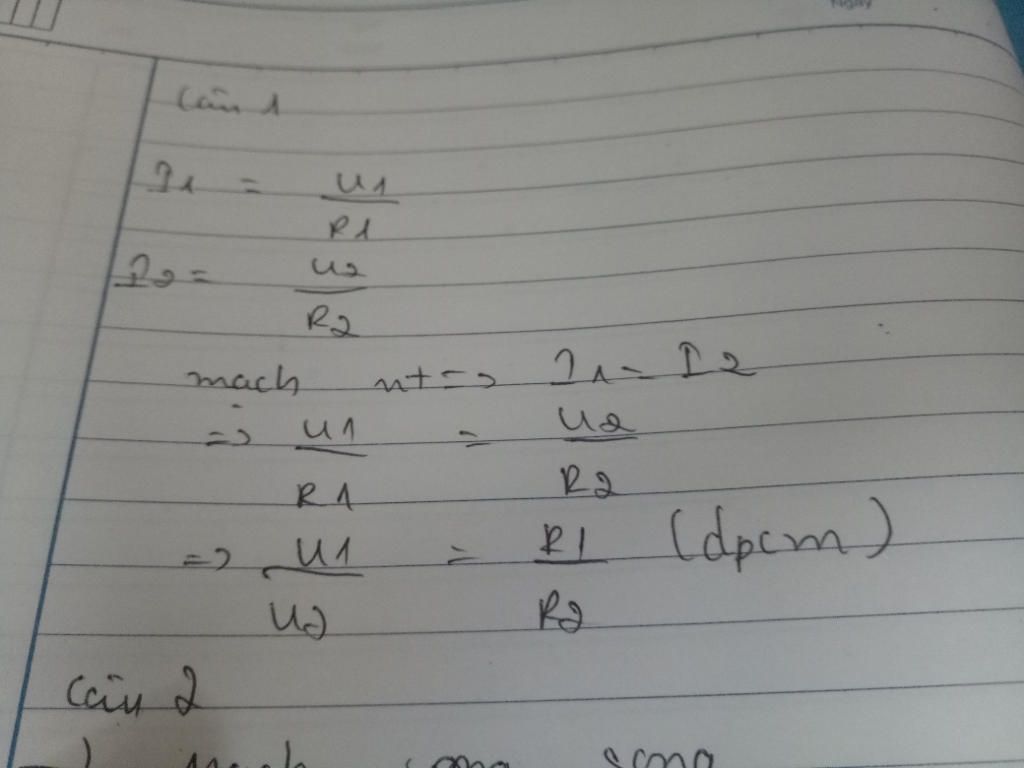 Ngày
Câu 1
I1 = U1/R1
I2 = U2/R2
mạch nt => I1 = I2
=> U1/R1 = U2/R2
=> U1/U2 = R1/R2 (dpcm)
Câu 2
mạch song song